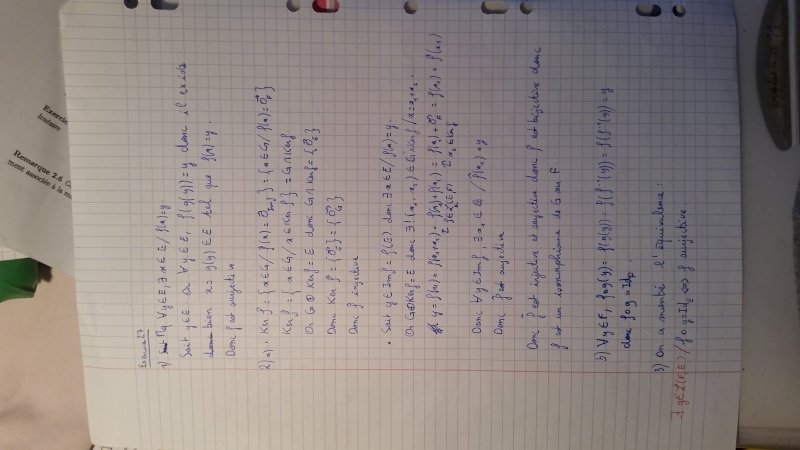 Exercice 27
1) Mq ∀y∈E, ∃x∈E / f(x)=y
Soit y∈E Or ∀y∈E, f(g(y))=y donc il existe
bien x= g(y)∈E tel que f(x)=y.
Donc f est surjective
2) a) • Ker f̃ = {x∈G / f̃(x)=0⃗_Imf} = {x∈G / f(x)=0⃗_F}
Ker f̃ = {x∈G / x∈Ker f} = G∩Ker f
Or G⊕Ker f = E donc G∩Ker f = {0⃗_E}
Donc Ker f̃ = {0⃗_E} = {0⃗_G}
Donc f̃ injective
• Soit y∈Im f = f(E) donc ∃x∈E / f(x)=y.
Or G⊕Ker f=E donc ∃!(x₁,x₂)∈G×Ker f / x=x₁+x₂.
y=f(x)= f(x₁+x₂) = f(x₁)+f(x₂) = f(x₁)+0⃗_F = f(x₁) = f̃(x₁)
f∈L(E,F) x₂∈Ker f
Donc ∀y∈Im f, ∃x₁∈G / f̃(x₁)=y
Donc f̃ est surjective
Donc f̃ est injective et surjective donc f̃ est bijective donc
f̃ est un isomorphisme de G sur F
b) ∀y∈F, fog(y) = f(g(y)) = f(f̃⁻¹(y)) = f̃(f̃⁻¹(y)) = y
donc fog = Id_F
3) On a montré l'équivalence :
∃ g∈L(F,E) / fog=Id_F ⇔ f surjective
Exercice
linéaire
Remarque 2.6
ment associée à la